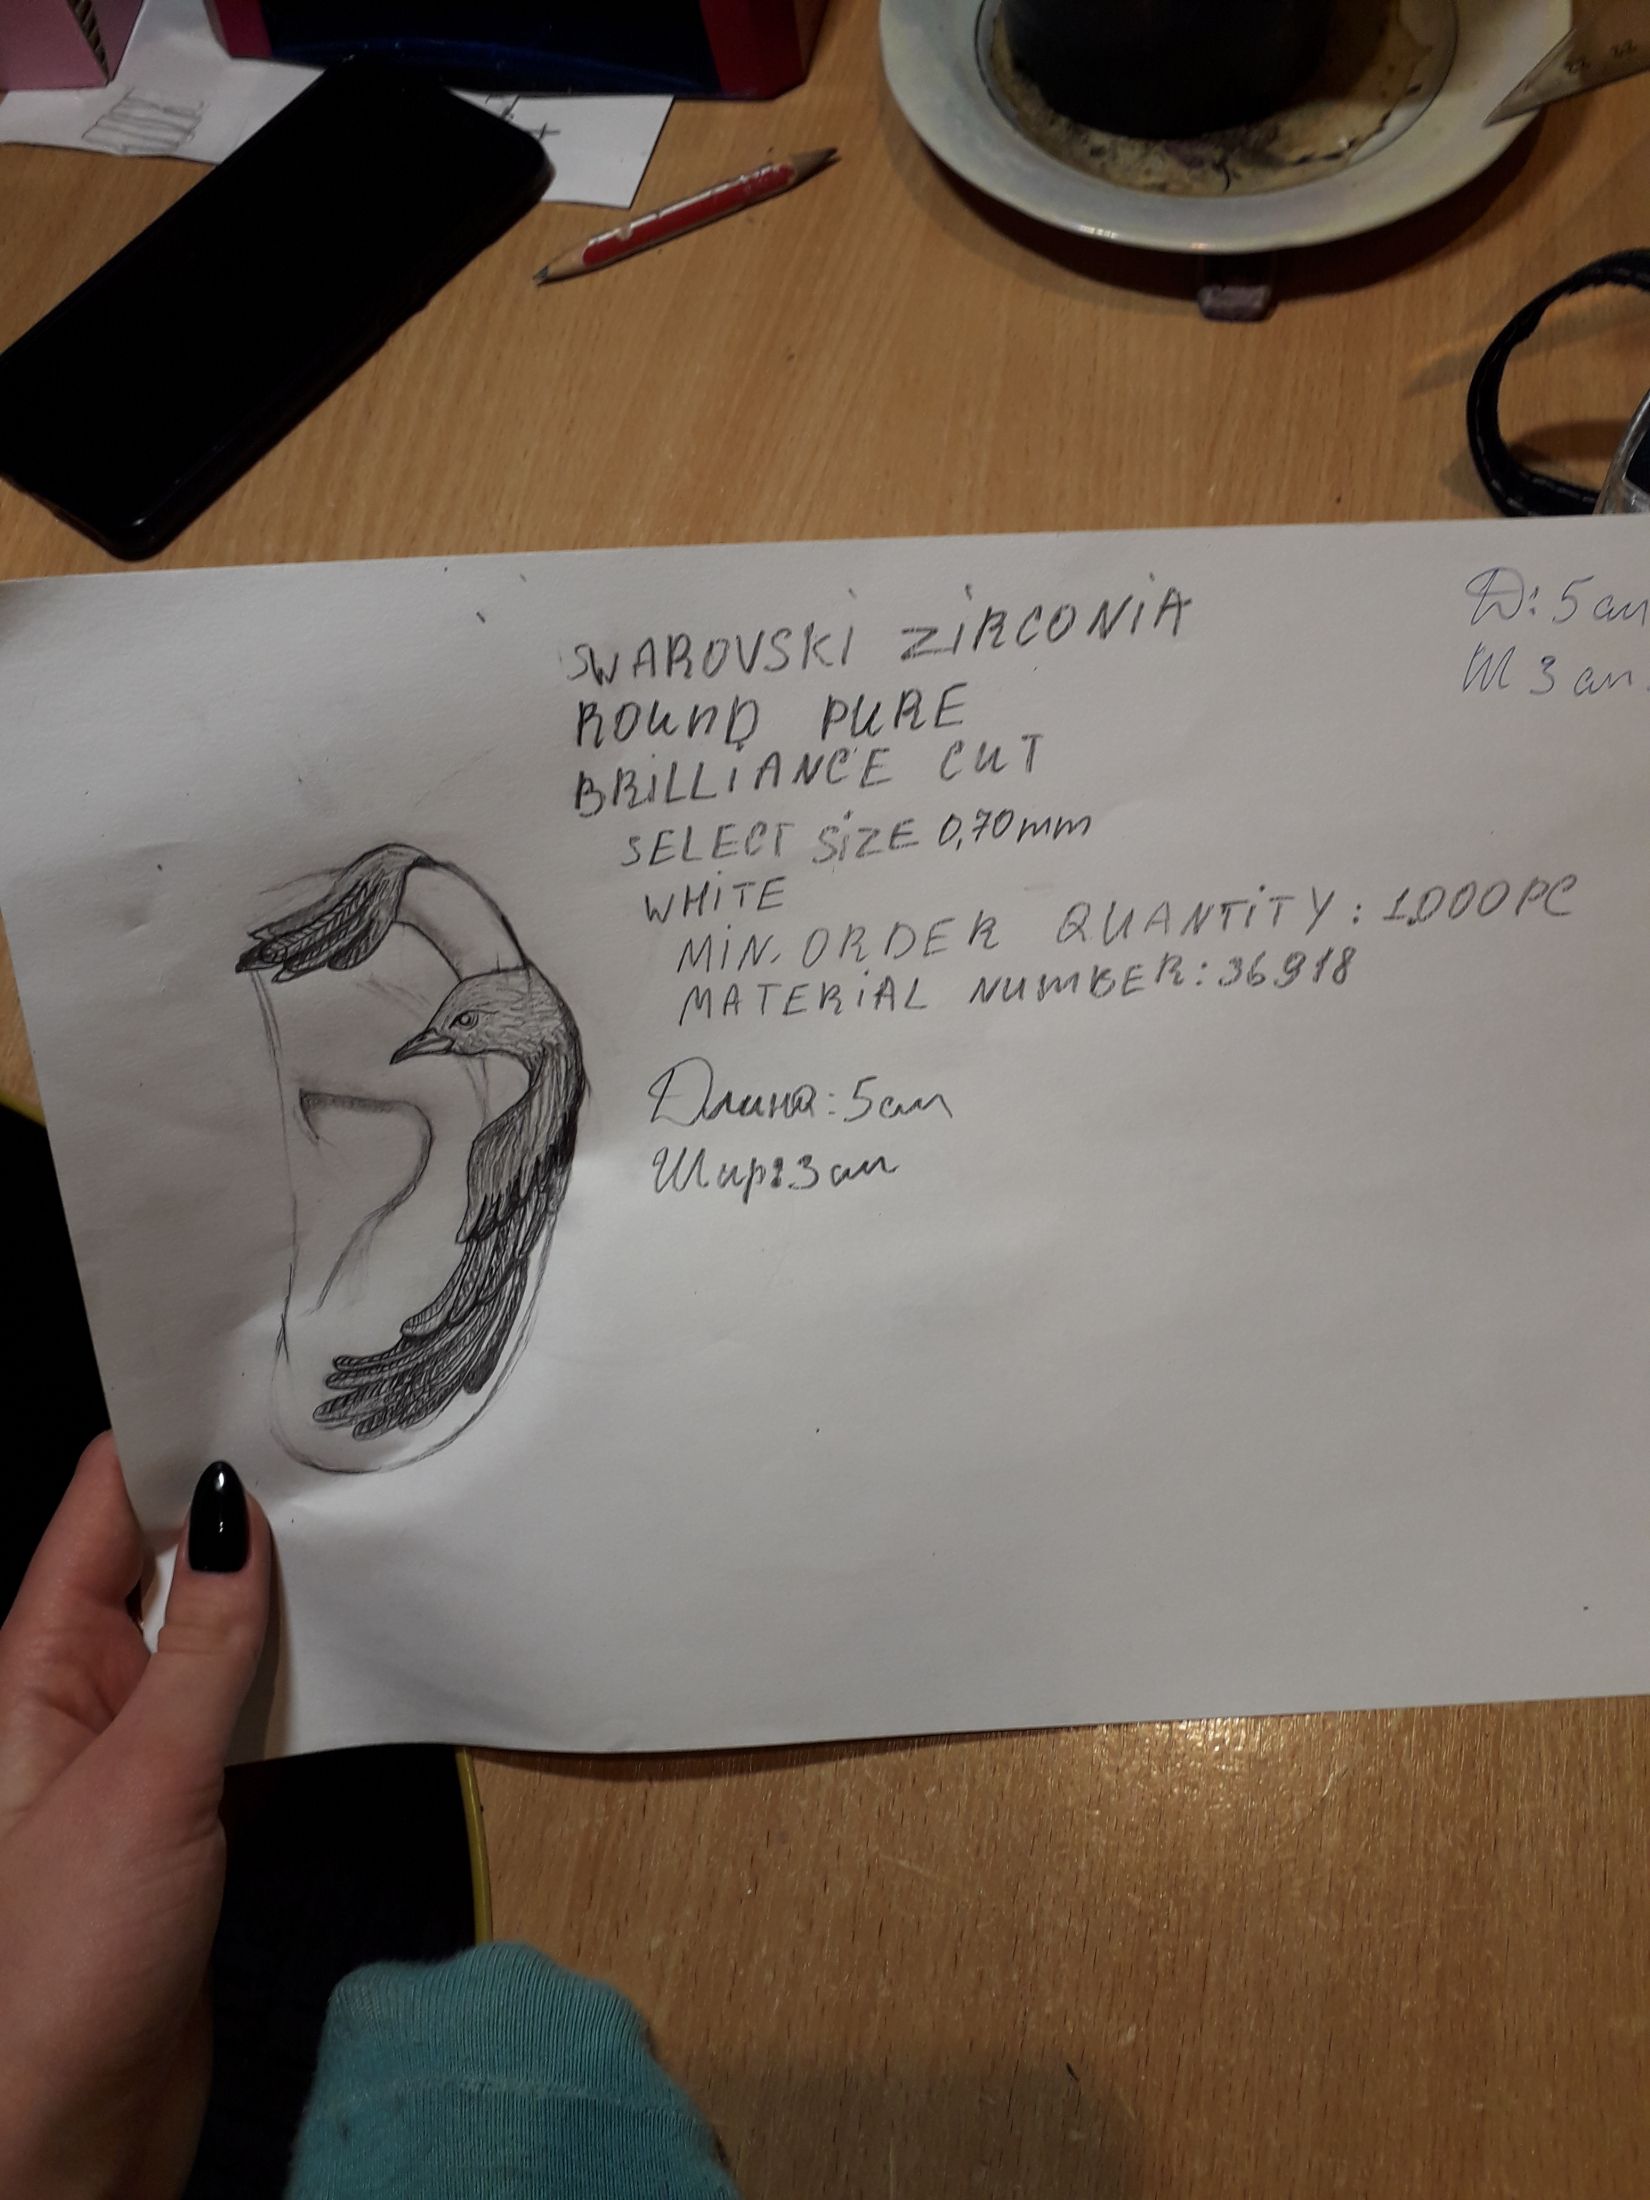 SWAROVSKI ZIRCONIA
ROUND PURE
BRILLIANCE CUT
SELECT SIZE 0,70mm
WHITE
MIN. ORDER QUANTITY: 1,000PC
MATERIAL NUMBER: 36918
Длина: 5 см
Шир: 3 см
Д: 5 см
Ш 3 см.